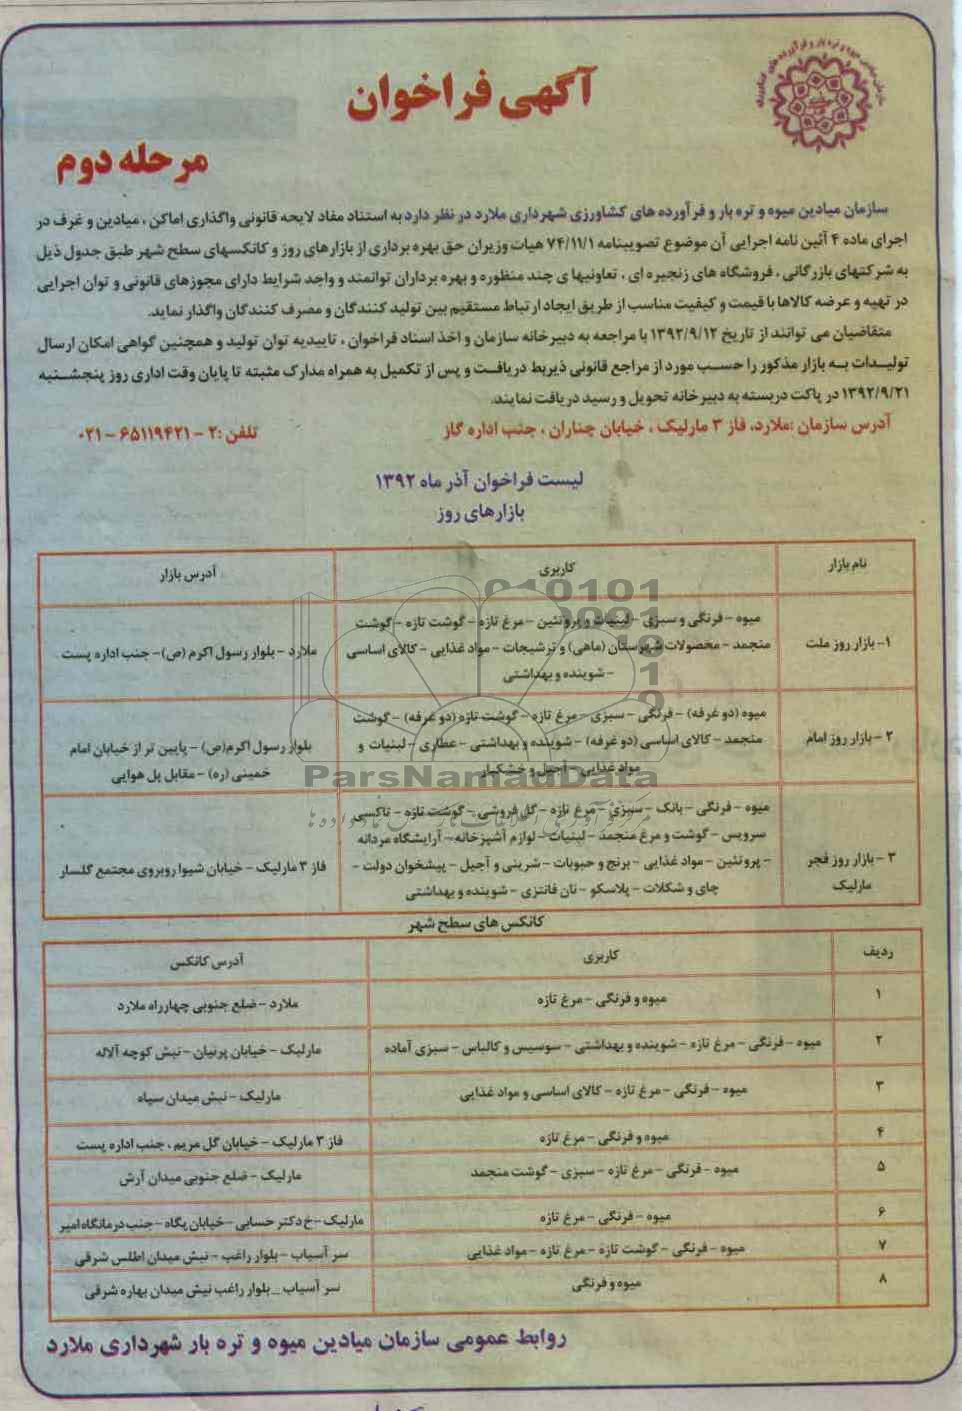 سازمان میادین میوه و تره بار و فرآورده های کشاورزی
آگهی فراخوان
مرحله دوم
سازمان میادین میوه و تره بار و فرآورده های کشاورزی شهرداری ملارد در نظر دارد به استناد مفاد لایحه قانونی واگذاری اماکن ، میادین و غرف در
اجرای ماده ۴ آئین نامه اجرایی آن موضوع تصویبنامه ۷۴/۱۱/۱ هیات وزیران حق بهره برداری از بازارهای روز و کانکسهای سطح شهر طبق جدول ذیل
به شرکتهای بازرگانی ، فروشگاه های زنجیره ای ، تعاونیها ی چند منظوره و بهره برداران توانمند و واجد شرایط دارای مجوزهای قانونی و توان اجرایی
در تهیه و عرضه کالاها با قیمت و کیفیت مناسب از طریق ایجاد ارتباط مستقیم بین تولید کنندگان و مصرف کنندگان واگذار نماید.
متقاضیان می توانند از تاریخ ۱۳۹۲/۹/۱۲ با مراجعه به دبیرخانه سازمان و اخذ اسناد فراخوان ، تاییدیه توان تولید و همچنین گواهی امکان ارسال
تولیدات به بازار مذکور را حسب مورد از مراجع قانونی ذیربط دریافت و پس از تکمیل به همراه مدارک مثبته تا پایان وقت اداری روز پنجشنبه
۱۳۹۲/۹/۲۱ در پاکت دربسته به دبیرخانه تحویل و رسید دریافت نمایند.
آدرس سازمان :ملارد، فاز ۳ مارلیک ، خیابان چناران ، جنب اداره گاز تلفن :۲ - ۶۵۱۱۹۴۲۱ - ۰۲۱
لیست فراخوان آذر ماه ۱۳۹۲
بازارهای روز
نام بازار کاربری آدرس بازار
۱- بازار روز ملت میوه - فرنگی و سبزی - لبنیات و پروتئین - مرغ تازه - گوشت تازه - گوشت
منجمد - محصولات شهرستان (ماهی) و ترشیجات - مواد غذایی - کالای اساسی
- شوینده و بهداشتی
ملارد - بلوار رسول اکرم (ص) - جنب اداره پست
۲ - بازار روز امام میوه (دو غرفه) - فرنگی - سبزی - مرغ تازه - گوشت تازه (دو غرفه) - گوشت
منجمد - کالای اساسی (دو غرفه) - شوینده و بهداشتی - عطاری - لبنیات و
مواد غذایی - آجیل و خشکبار
بلوار رسول اکرم(ص) - پایین تر از خیابان امام
خمینی (ره) - مقابل پل هوایی
۳ - بازار روز فجر
مارلیک
میوه - فرنگی - بانک - سبزی - مرغ تازه - گل فروشی - گوشت تازه - تاکسی
سرویس - گوشت و مرغ منجمد - لبنیات - لوازم آشپزخانه - آرایشگاه مردانه
- پروتئین - مواد غذایی - برنج و حبوبات - شرینی و آجیل - پیشخوان دولت -
چای و شکلات - پلاسکو - نان فانتزی - شوینده و بهداشتی
فاز ۳ مارلیک - خیابان شیوا روبروی مجتمع گلسار
ParsNamadData
کانکس های سطح شهر
ردیف کاربری آدرس کانکس
۱ میوه و فرنگی - مرغ تازه ملارد - ضلع جنوبی چهارراه ملارد
۲ میوه - فرنگی - مرغ تازه - شوینده و بهداشتی - سوسیس و کالباس - سبزی آماده مارلیک - خیابان پرنیان - نبش کوچه آلاله
۳ میوه - فرنگی - مرغ تازه - کالای اساسی و مواد غذایی مارلیک - نبش میدان سپاه
۴ میوه و فرنگی - مرغ تازه فاز ۳ مارلیک - خیابان گل مریم ، جنب اداره پست
۵ میوه - فرنگی - مرغ تازه - سبزی - گوشت منجمد مارلیک - ضلع جنوبی میدان آرش
۶ میوه - فرنگی - مرغ تازه مارلیک - خ دکتر حسابی - خیابان پگاه - جنب درمانگاه امیر
۷ میوه - فرنگی - گوشت تازه - مرغ تازه - مواد غذایی سر آسیاب - بلوار راغب - نبش میدان اطلس شرقی
۸ میوه و فرنگی سر آسیاب _ بلوار راغب نبش میدان بهاره شرقی
روابط عمومی سازمان میادین میوه و تره بار شهرداری ملارد